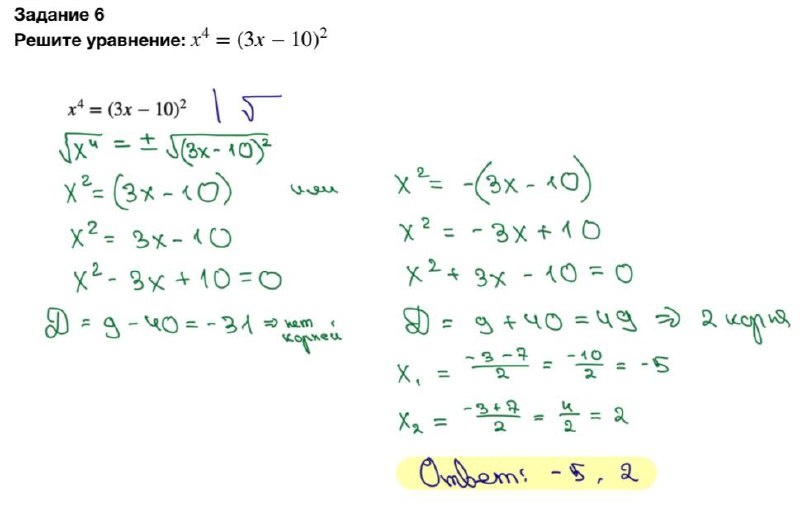 Задание 6
Решите уравнение: x⁴ = (3x − 10)²
x⁴ = (3x − 10)² | √
√x⁴ = ± √(3x-10)²
x² = (3x - 10) или x² = -(3x - 10)
x² = 3x - 10
x² - 3x + 10 = 0
D = 9 - 40 = -31 ⇒ нет корней
x² = -3x + 10
x² + 3x - 10 = 0
D = 9 + 40 = 49 ⇒ 2 корня
x₁ = (-3-7)/2 = -10/2 = -5
x₂ = (-3+7)/2 = 4/2 = 2
Ответ: -5, 2